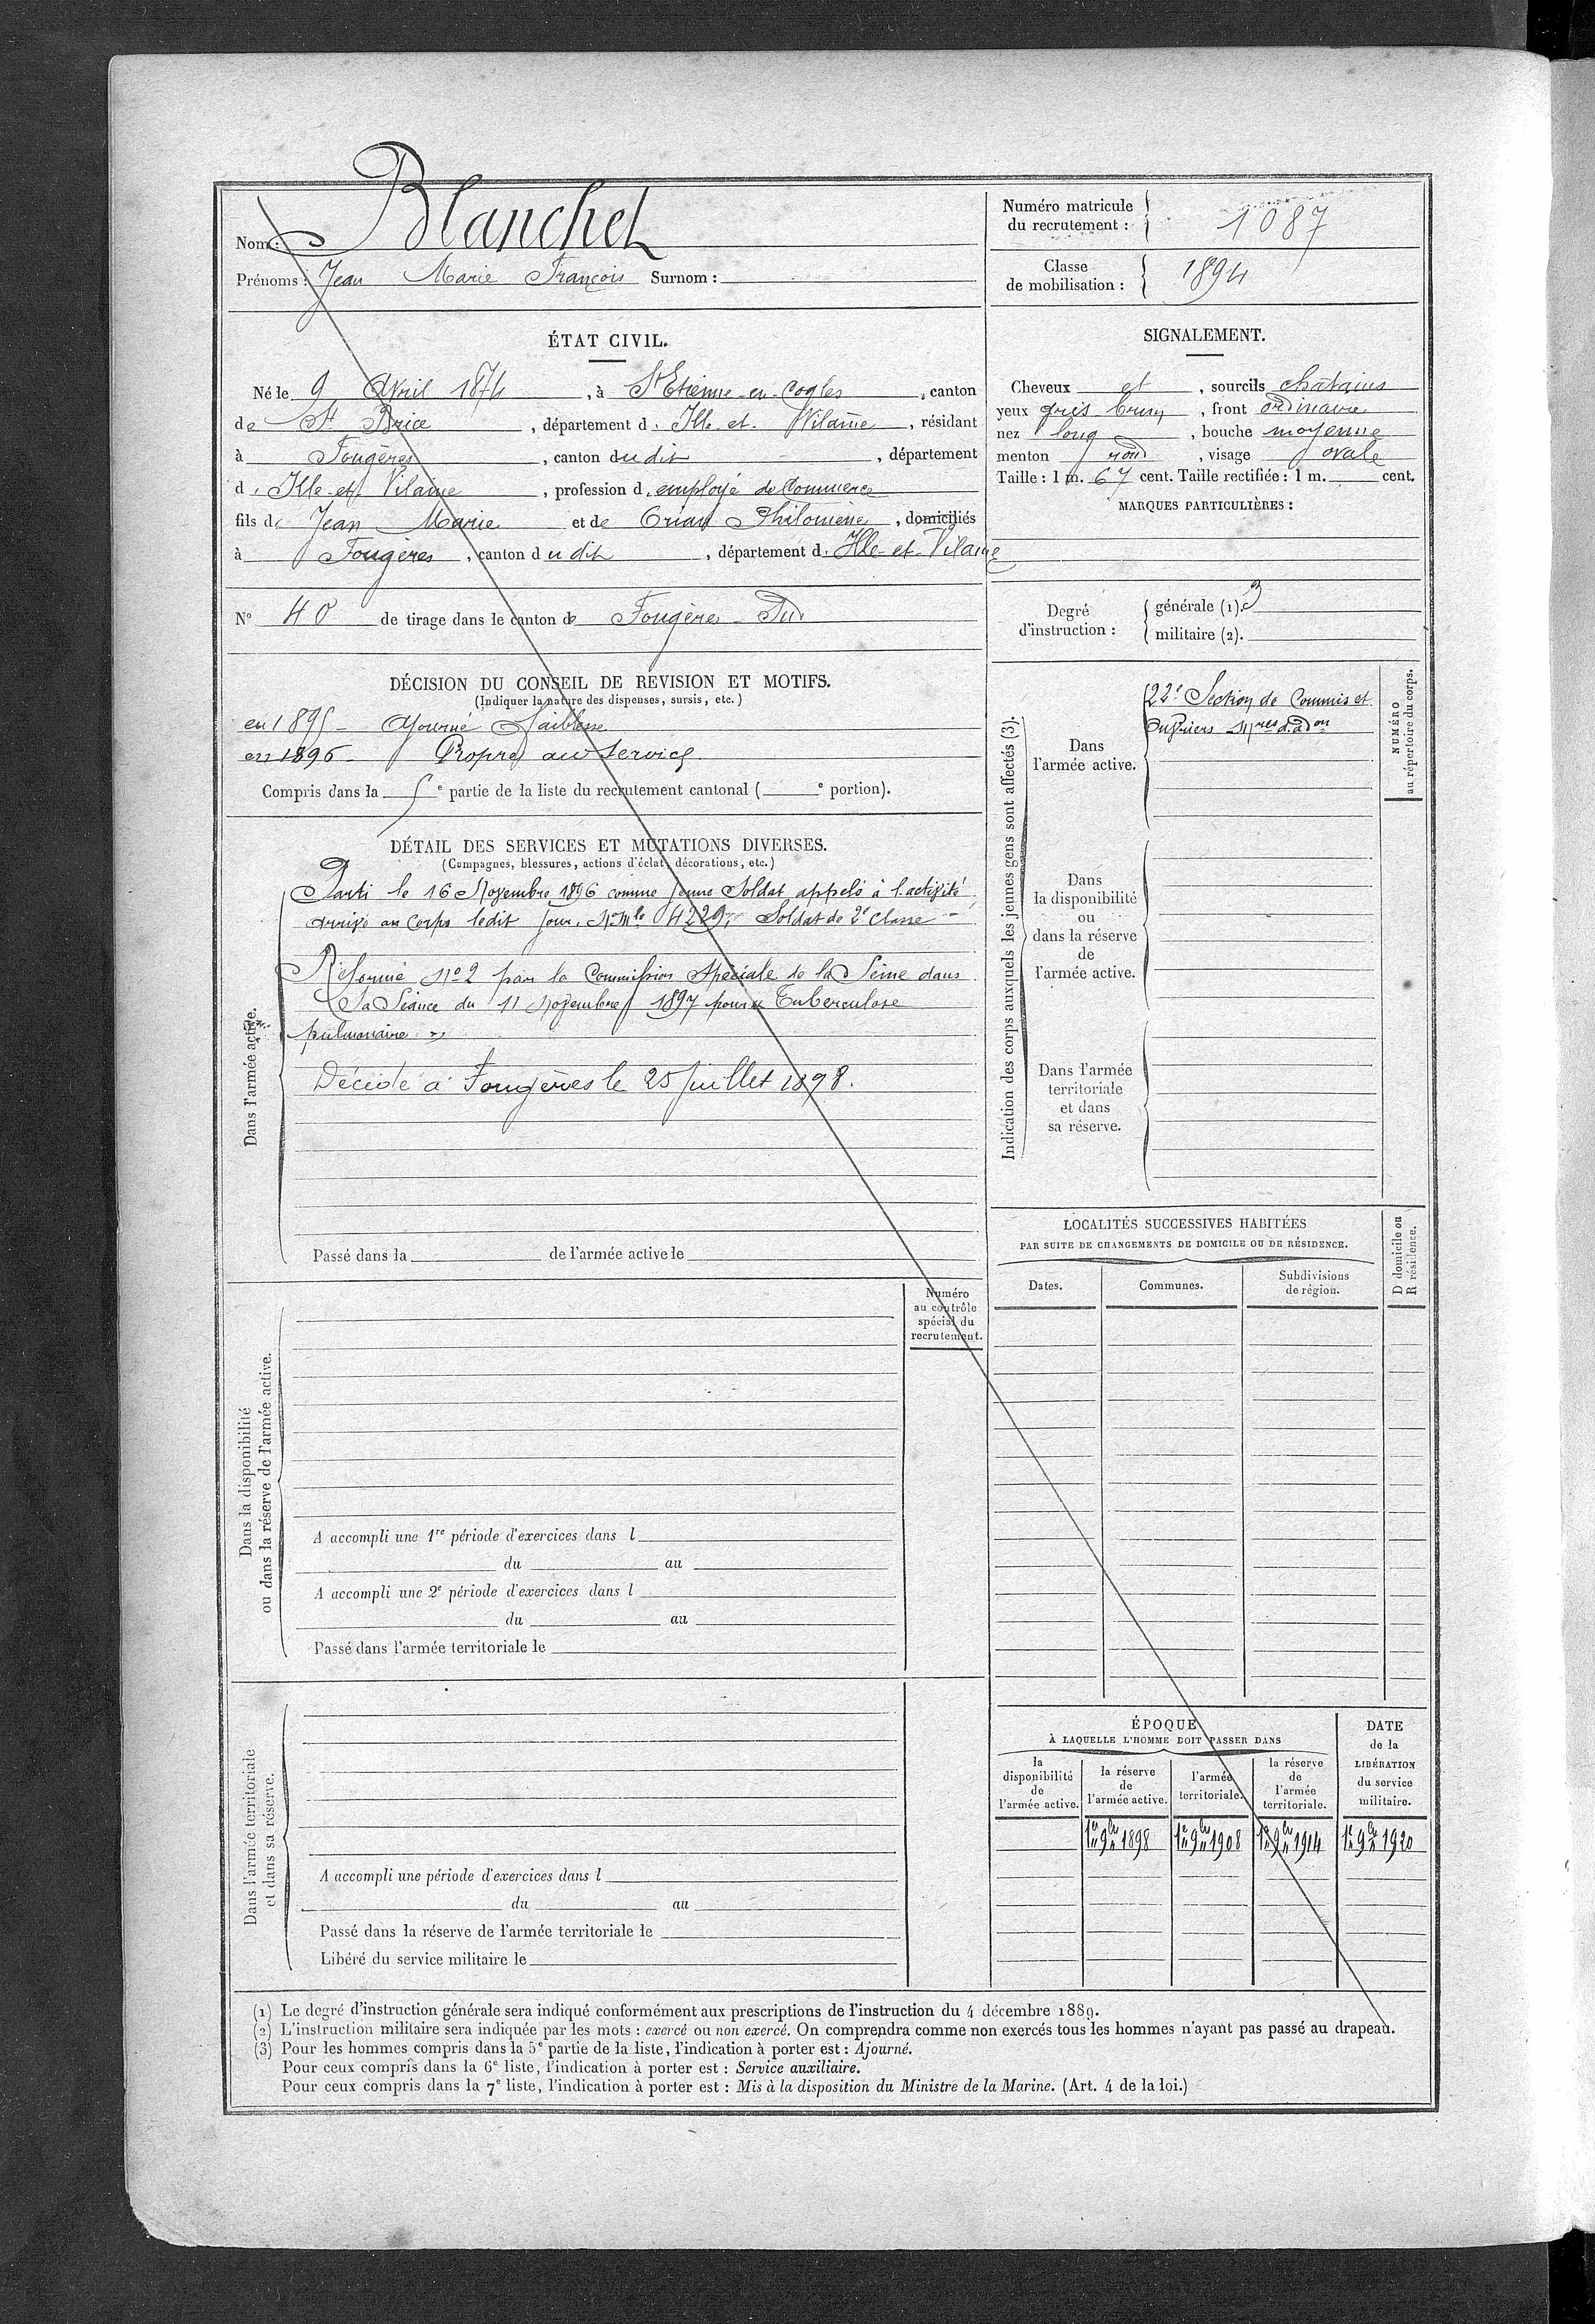 Nom : Blanchet
Prénoms : Jean Marie François Surnom :
Numéro matricule du recrutement : 1087
Classe de mobilisation : 1894
ÉTAT CIVIL.
Né le 9 Avril 1874, à St Etienne-en-Cogles, canton
de St Brice, département d. Ille-et-Vilaine, résidant
à Fougères, canton dudit, département
d. Ille-et-Vilaine, profession d. employé de Commerce
fils de Jean Marie et de Philomène, domiciliés
à Fougères, canton dudit, département d. Ille-et-Vilaine
N° 40 de tirage dans le canton de Fougères Sud
SIGNALEMENT.
Cheveux et, sourcils châtains
yeux gris brun, front ordinaire
nez long, bouche moyenne
menton rond, visage ovale
Taille : 1 m. 67 cent. Taille rectifiée : 1 m. cent.
MARQUES PARTICULIÈRES :
Degré d'instruction :
générale (1). 3
militaire (2).
DÉCISION DU CONSEIL DE RÉVISION ET MOTIFS.
(Indiquer la nature des dispenses, sursis, etc.)
en 1895 - Ajourné Faiblesse
en 1896 - Propre au service
Compris dans la 5e partie de la liste du recrutement cantonal ( e portion).
DÉTAIL DES SERVICES ET MUTATIONS DIVERSES.
(Campagnes, blessures, actions d'éclat, décorations, etc.)
Dans l'armée active.
Parti le 16 Novembre 1896 comme jeune Soldat appelé à l'activité
arrivé au Corps ledit jour. N° Mle 4229, Soldat de 2e Classe
Réformé N° 2 par la Commission Spéciale de la Seine dans
Sa Séance du 11 Novembre 1897 pour « Tuberculose
pulmonaire »
Décédé à Fougères le 25 Juillet 1898.
Passé dans la de l'armée active le
Indication des corps auxquels les jeunes gens sont affectés (3).
NUMÉRO au répertoire du corps.
Dans l'armée active.
22e Section de Commis et
Ouvriers Mres d'adon
Dans la disponibilité ou dans la réserve de l'armée active.
Dans l'armée territoriale et dans sa réserve.
LOCALITÉS SUCCESSIVES HABITÉES
PAR SUITE DE CHANGEMENTS DE DOMICILE OU DE RÉSIDENCE.
D domicile ou R résidence.
Dates. Communes. Subdivisions de région.
Numéro au contrôle spécial du recrutement.
Dans la disponibilité
ou dans la réserve de l'armée active.
A accompli une 1re période d'exercices dans l
du au
A accompli une 2e période d'exercices dans l
du au
Passé dans l'armée territoriale le
Dans l'armée territoriale
et dans sa réserve.
A accompli une période d'exercices dans l
du au
Passé dans la réserve de l'armée territoriale le
Libéré du service militaire le
ÉPOQUE
À LAQUELLE L'HOMME DOIT PASSER DANS
DATE de la LIBÉRATION du service militaire.
la disponibilité de l'armée active.
la réserve de l'armée active.
l'armée territoriale.
la réserve de l'armée territoriale.
1er 9bre 1898 1er 9bre 1908 1er 9bre 1914 1er 9bre 1920
(1) Le degré d'instruction générale sera indiqué conformément aux prescriptions de l'instruction du 4 décembre 1889.
(2) L'instruction militaire sera indiquée par les mots : exercé ou non exercé. On comprendra comme non exercés tous les hommes n'ayant pas passé au drapeau.
(3) Pour les hommes compris dans la 5e partie de la liste, l'indication à porter est : Ajourné.
Pour ceux compris dans la 6e liste, l'indication à porter est : Service auxiliaire.
Pour ceux compris dans la 7e liste, l'indication à porter est : Mis à la disposition du Ministre de la Marine. (Art. 4 de la loi.)